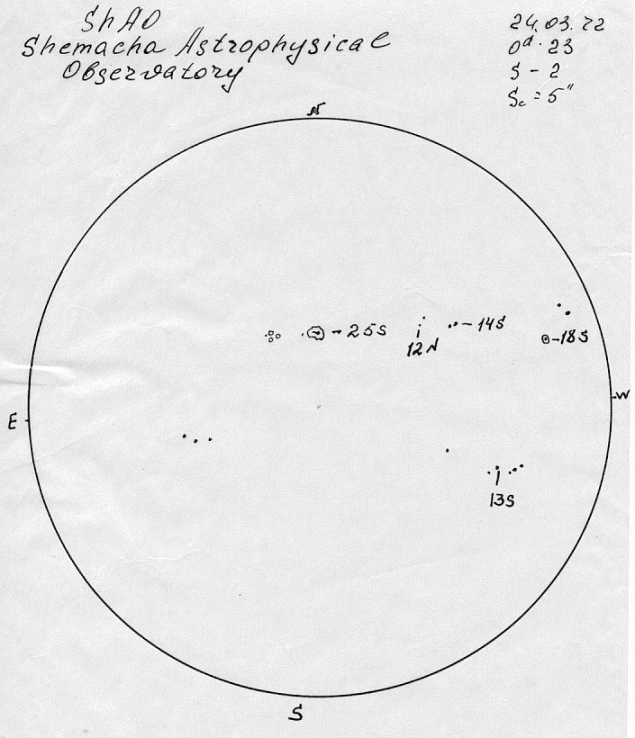 ShAO
Shemacha Astrophysical
Observatory
24.03.72
0ᵈ.23
S - 2
Sc = 5"
N
25S
12N
14S
18S
W
E
13S
S